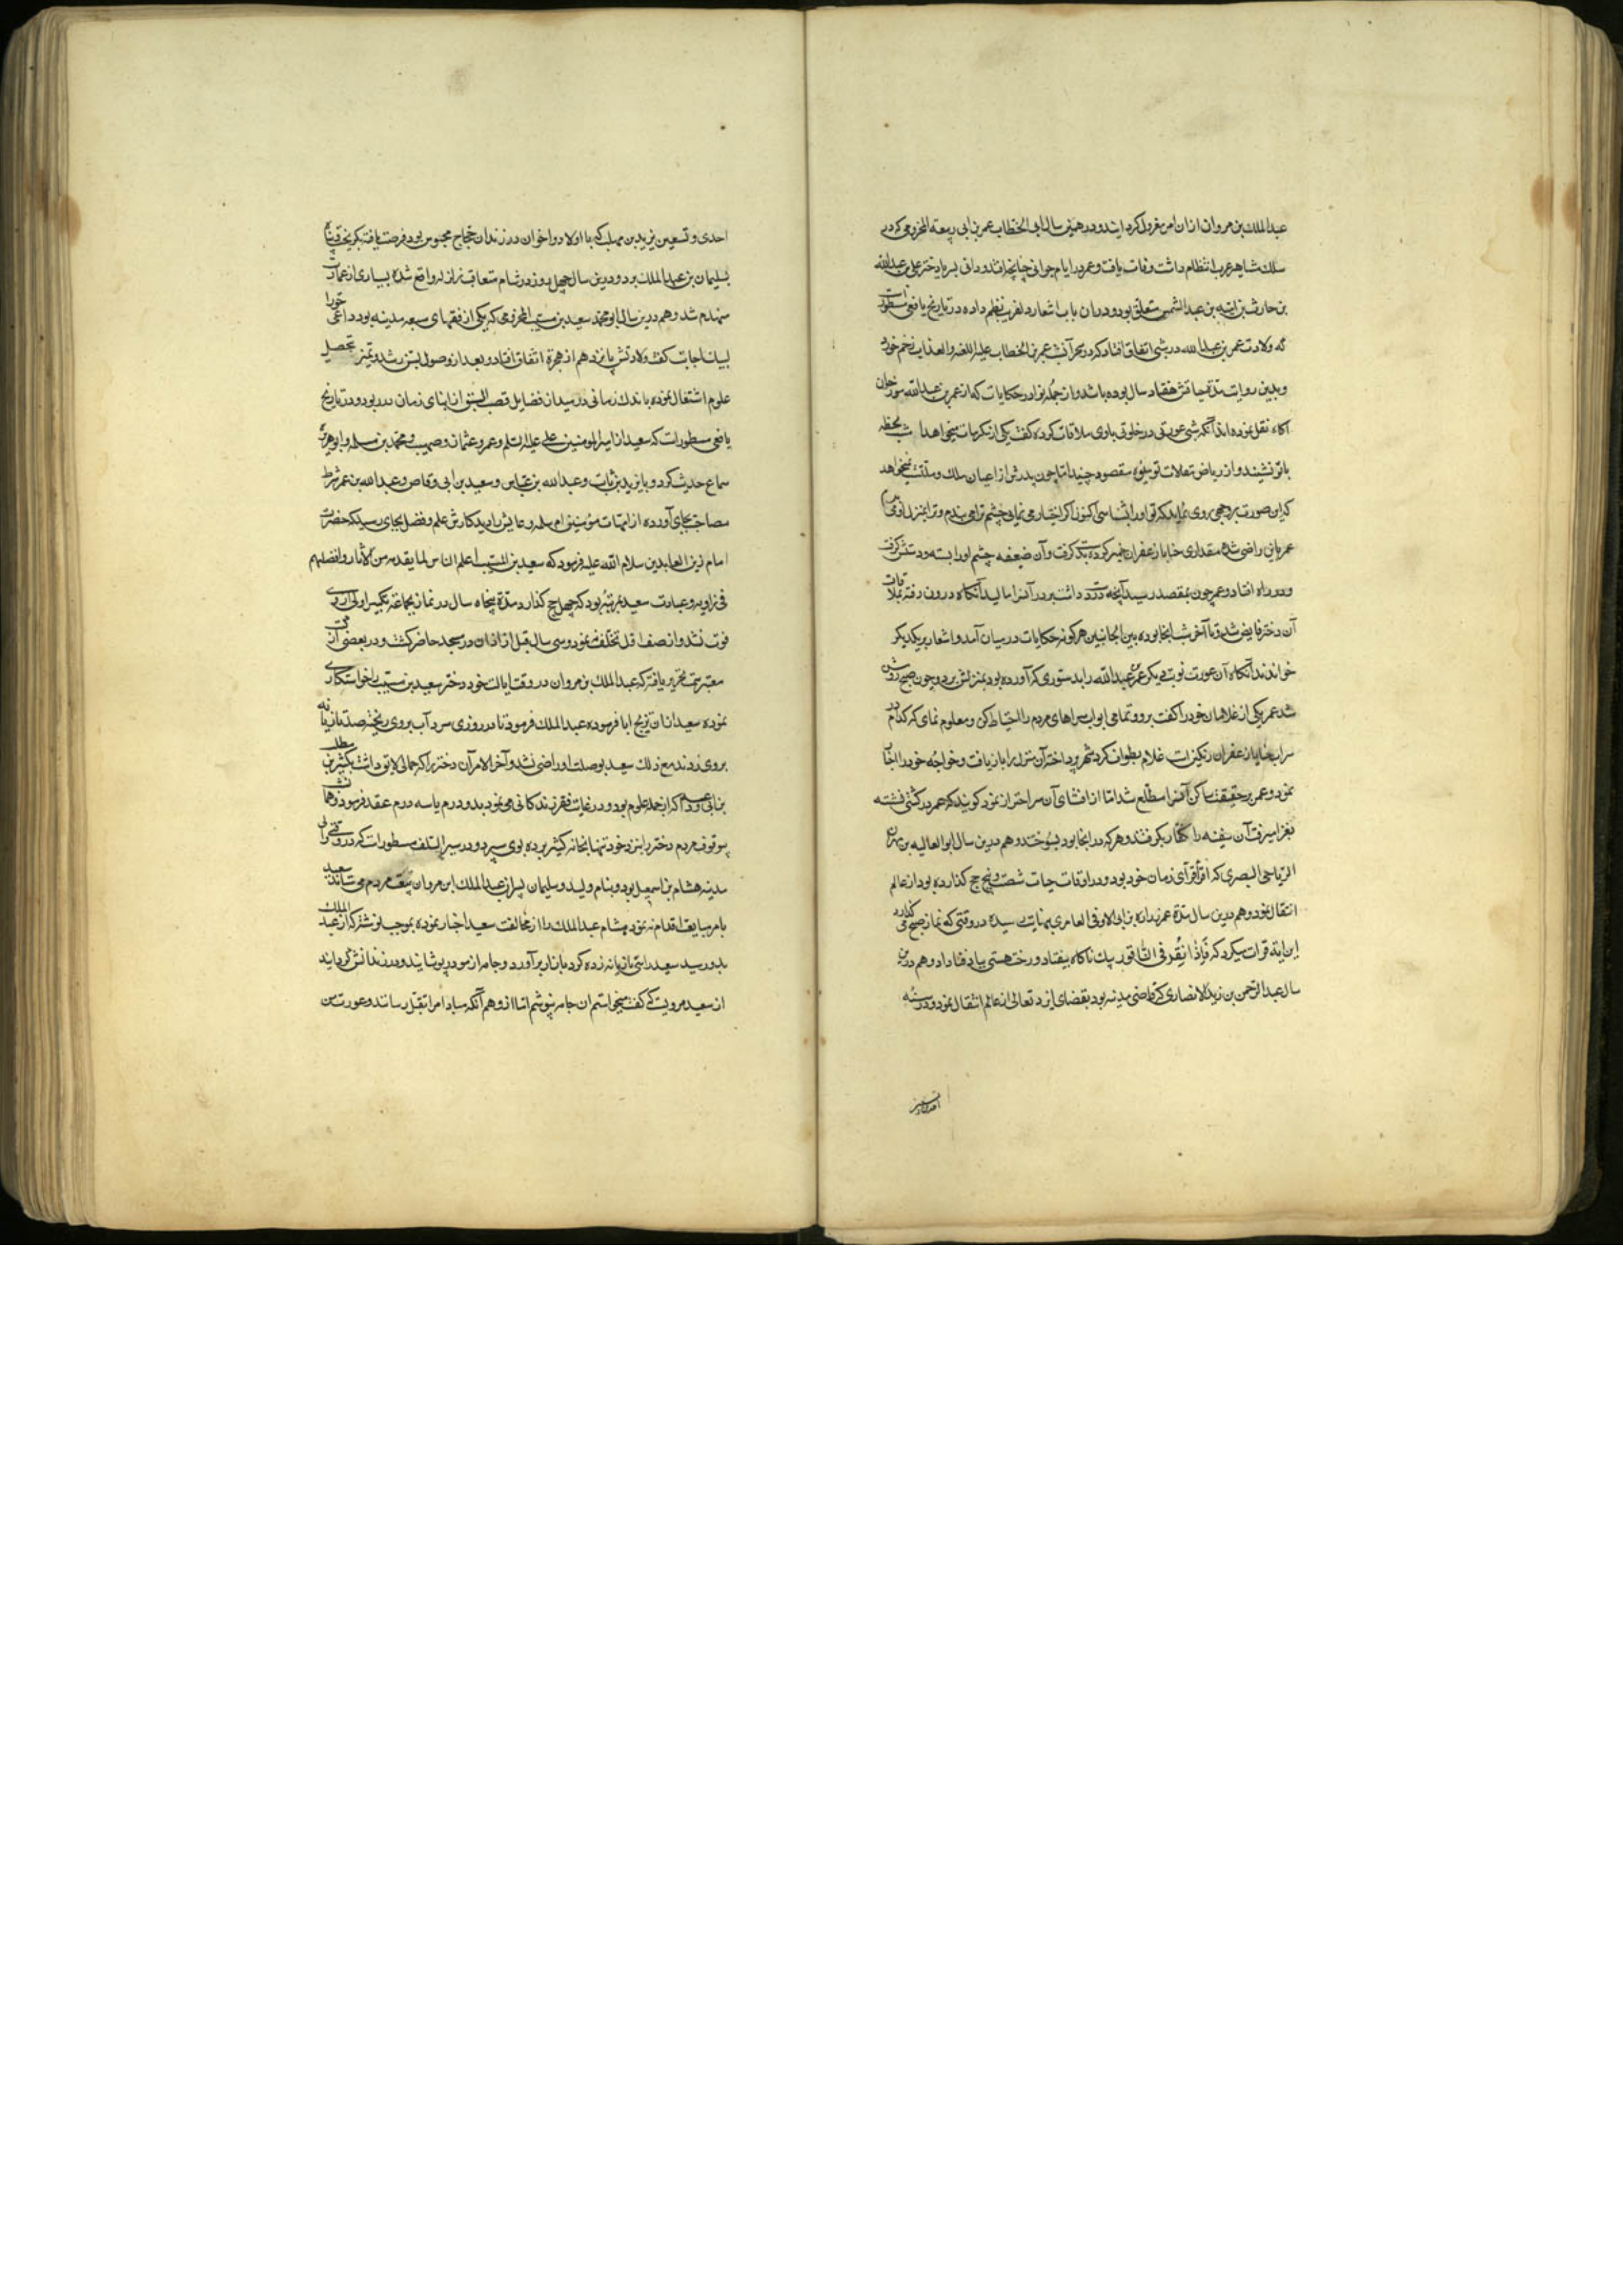 عبدالملک بن مروان ازان امر معزول کرد ایند و در همین سال ابی الخطاب عمر بن ابی ربیعه المخزومی که در
سلک مشاهیر عرب انتظام داشت وفات یافت و عمر در ایام جوانی چنانچه افتد و دانی بسر با دختر علی بن عبدالله
بن حارث بن امیه بن عبدالشمس متعلق بود و دران باب اشعار دلفریب نظم داده در تاریخ یافعی مسطور است
که ولادت عمر بن عبدالله در شبی اتفاق افتاد که در سحر آنشب عمر بن الخطاب علیه اللعنه والعذاب زخم خورد
و بدین روایت مدت حیاتش هفتاد سال بوده باشد و از جمله نوادر حکایات که از عمر بن عبدالله مورخان
آکاه نقل نموده اند آنکه شبی عورتی در خلوتی باوی ملاقات کرده کفت یکی از مکرمات میخواهد امشب لحظه
با تو نشیند و از ریاض مقالات تو میوه مقصود چیند اما چون پدرش از اعیان ملک و ملتست نمیخواهد
که این صورت بر وجهی روی نماید که تو اورا بشناسی اکنون اگر اختیار می نمایی چشم ترا می بندم و ترا بمنزل او می برم
عمر باین راضی شده مقداری حنا با زعفران خمیر کرده بدست گرفت و آن ضعیفه چشم اورا بسته و دستش گرفت
و در راه افتاد و عمر چون بمقصد رسید آنچه در دست داشت بر در آنسرا مالید آنگاه درون رفته بملاقات
آن دختر فایض شد و تا آخر شب آنجا بوده بین الجانبین هر کونه حکایات در میان آمد و اشعار بر یکدیکر
خواندند آنگاه آن عورت نوبت دیکر عمر بن عبدالله را بدستوری که آورده بود بمنزلش برد و چون صبح روشن
شد عمر یکی از غلامان خود را کفت برو و تمامی ابواب سراهای مردم را احتیاط کن و معلوم نمای که کدام در
سرا بحنا یا زعفران رنکین است غلام بطواف کرد شهر پرداخته آن منزل را باز یافت و خواجه خود را اخبار
نمود و عمر بر حقیقت ساکن آنسرا مطلع شد اما از افشای آن سر احتراز نمود کویند که عمر در کشتی نشسته
بغزا میرفت آن سفینه را کفار بکرفتند و هر که در انجا بود بسوختند و هم درین سال ابو العالیه بن مهران
الریاحی البصری که اقرأ قرآی زمان خود بود و در اوقات حیات شصت و پنج حج کذارده بود از عالم
انتقال نمود و هم درین سال مدت عمر زراره بن ابی الاوفی العامری بنهایت رسیده در وقتی که نماز صبح می کذارد
این ایه قرات میکرد که فَإِذا نُقِرَ فی النّاقور بیک ناکاه بیفتاد و رخت هستی بباد فنا داد و هم درین
سال عبدالرحمن بن زید الانصاری که قاضی مدینه بود بقضای ایزد تعالی از عالم انتقال نمود و در سنه
احدی و تسعین
احدی و تسعین یزید بن مهلب که با اولاد و اخوان در زندان حجاج محبوس بود فرصت یافته بکریخت و پناه
بسلیمان بن عبدالملک برد و درین سال چهل روز در شام متعاقب زلزله واقع شده بسیاری از عمارات
منهدم شد و هم درین سال ابو محمد سعید بن مسیب المخزومی که یکی از فقهای سبعه مدینه بود داعی حق را
لبیک اجابت کفت ولادتش پانزدهم از هجرة اتفاق افتاد و بعد از وصول بسن رشد و تمیز بتحصیل
علوم اشتغال نموده باندک زمانی در میدان فضایل قصب السبق از ابنای زمان در ربود و در تاریخ
یافعی مسطورات که سعید از امیرالمومنین علی علیه السلم و عمر و عثمان و صهیب و محمد بن مسلمه و ابو هریره
سماع حدیث کرد و با زید بن ثابت و عبدالله بن عباس و سعید بن ابی وقاص و عبدالله بن عمر شرط
مصاحبت بجای آورده از امهات مؤمنین ام سلمه و عایشه را دید کارش علم و فضل بجای رسید که حضرت
امام زین العابدین سلام الله علیه فرمود که سعید بن المسیب اعلم الناس لما یقدمه من الاثار و افضلهم
فی زاویه و عبادت سعید بمرتبه بود که چهل حج کذارد مدة پنجاه سال در نماز بجماعة تکبیر اولی از وی
فوت نشد و از صف اول تخلف ننمود و سی سال قبل از اذان در مسجد حاضر کشت و در بعضی از کتب
معتبر سمت تحریر یافته که عبدالملک بن مروان در وقت ایالت خود دختر سعید بن مسیب را خواستکاری
نموده سعید ازان تزویج ابا فرمود عبدالملک فرمود تا در روزی سرد آب بر وی ریختند صد تازیانه
بر وی زدند مع ذلک سعید بوصلت او راضی نشد و آخر الامر آن دختر را که جمالی لایق داشت بکثیر بن مطلب
بن ابی وداعه که از جمله علوم بود و در غایت فقر زندکانی می نمود بدو درم یا سه درم عقد فرمود و همان شب
موقوف مردم دختر را بنزد خود تنها بخانه کثیر برده بوی سپرد و در سیر السلف مسطورات که در وقتی که والی
مدینه هشام بن اسمعیل بود و بنام ولید و سلیمان پسران عبدالملک ابن مروان بیعت مردم می ستاند سعید
بامر مبایعت اقدام ننمود هشام عبدالملک را از مخالفت سعید اخبار نموده بموجب نوشته که از عبدالملک
بدو رسید سعید را سی تازیانه زده کرد بازار برآورد و جامه از مو در پوشانید و در زندانش کردانید
از سعید مرویست که کفت میخواستم ان جامه نپوشم اما از وهم آنکه مبادا مرا بقتل رسانند و عورت من